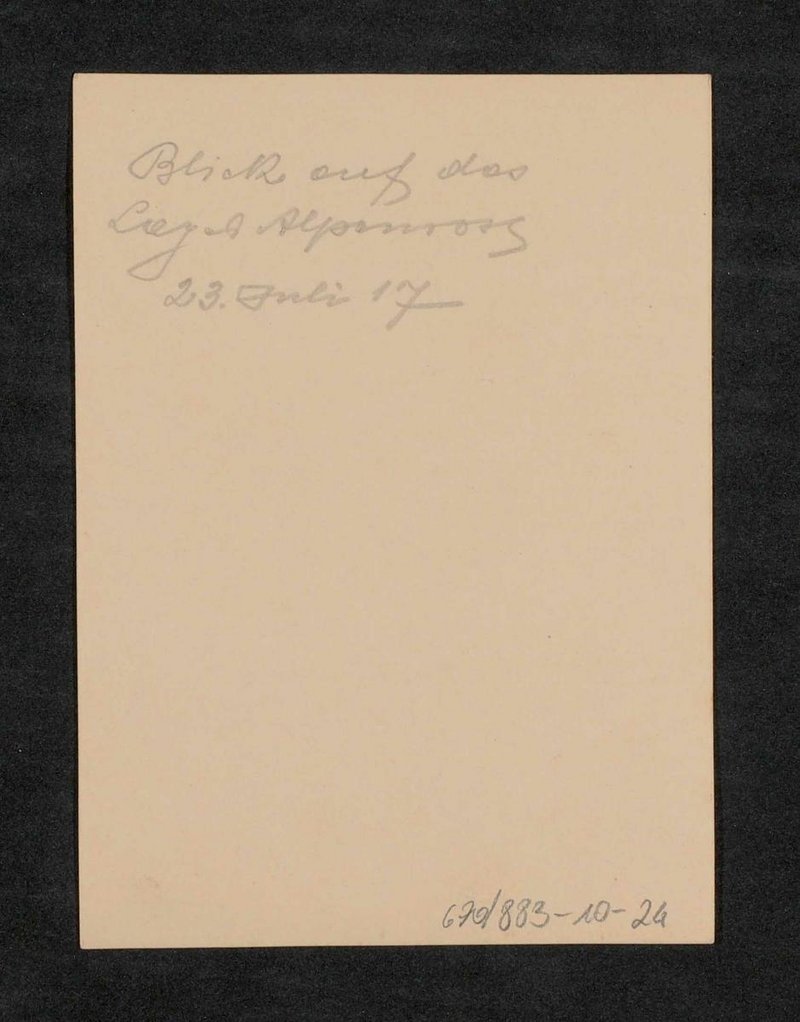 Blick auf das
Lager Alpenrose
23. Juli 17
670/883-10-24